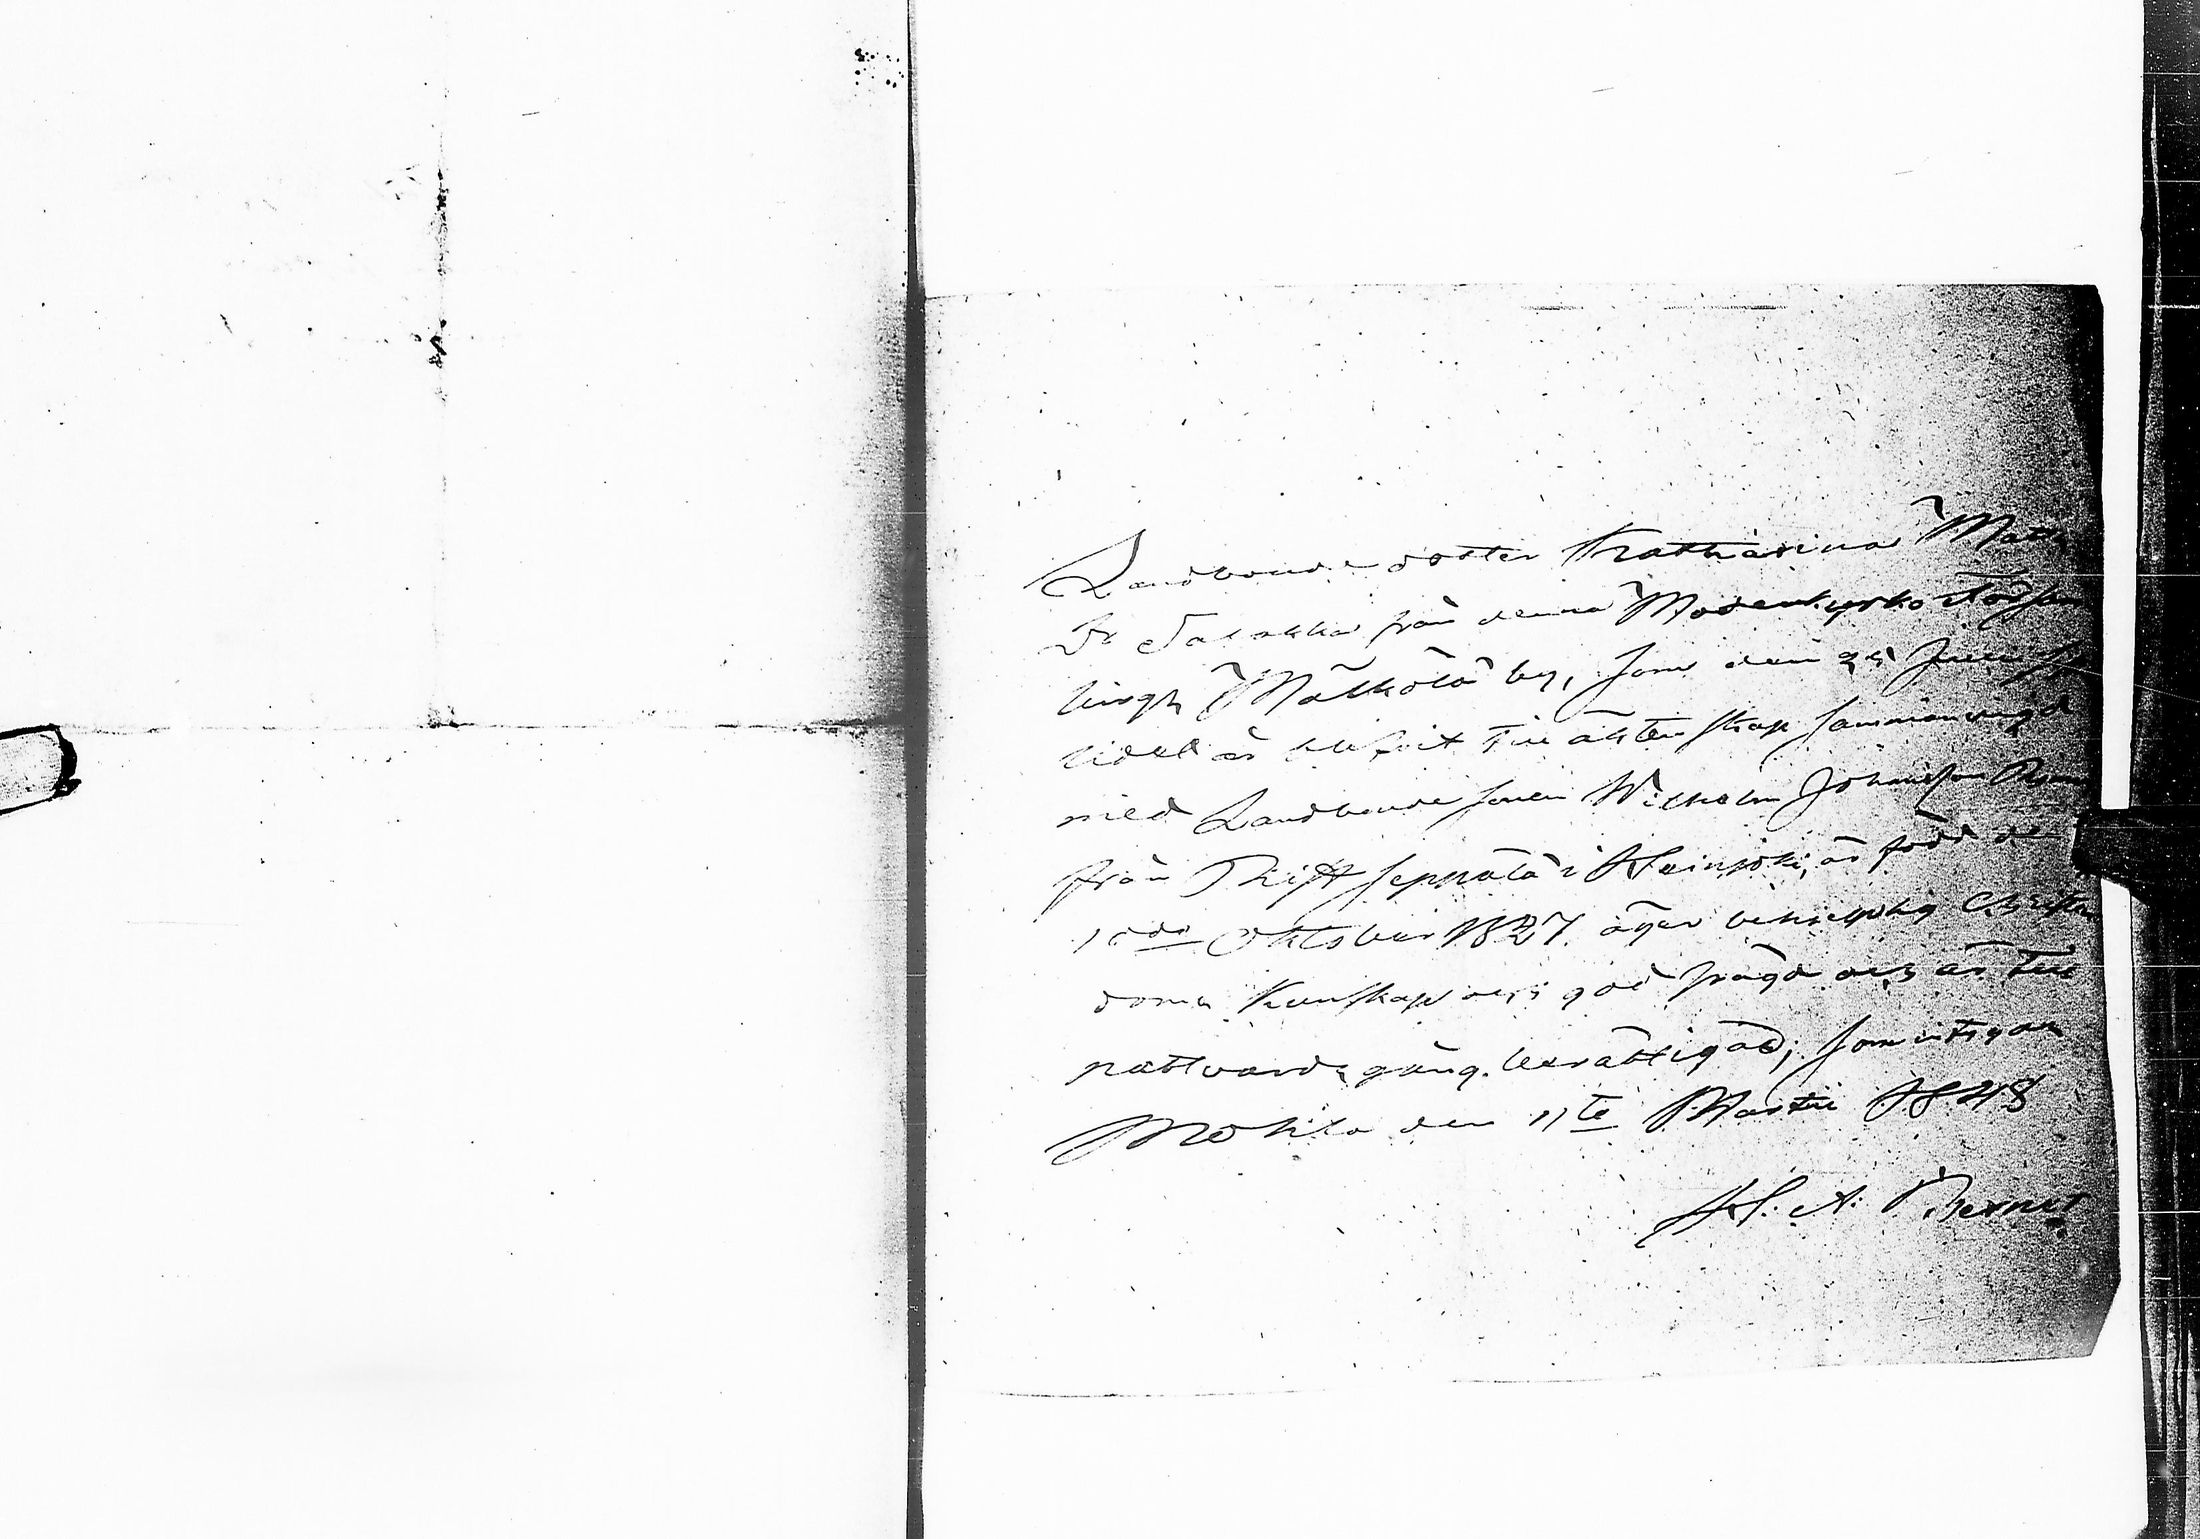 Landbonde dotter Katharina Mats
Dr från denna Modenkyrko Försam
lingh Mälkölä by, som den 25 Juni
lidet år blifvit till äktenskap sammanvigd
med Landbonde sonen Wilhelm Johansson
från i Heinjoki, är född den
Oktober 1827. äger behjelplig Christen
doms kunskap och god frägd och är till
nattvards gång berättigad; som intygar
Mohla den 11te Martii 1848
H. A.